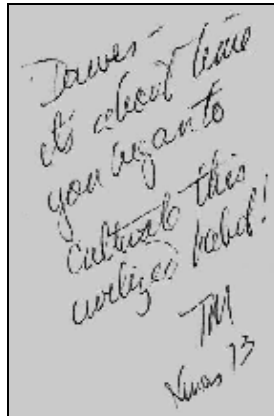 Dawes -
it's about time
you began to
cultivate this
civilized habit!
TM
Xmas 73